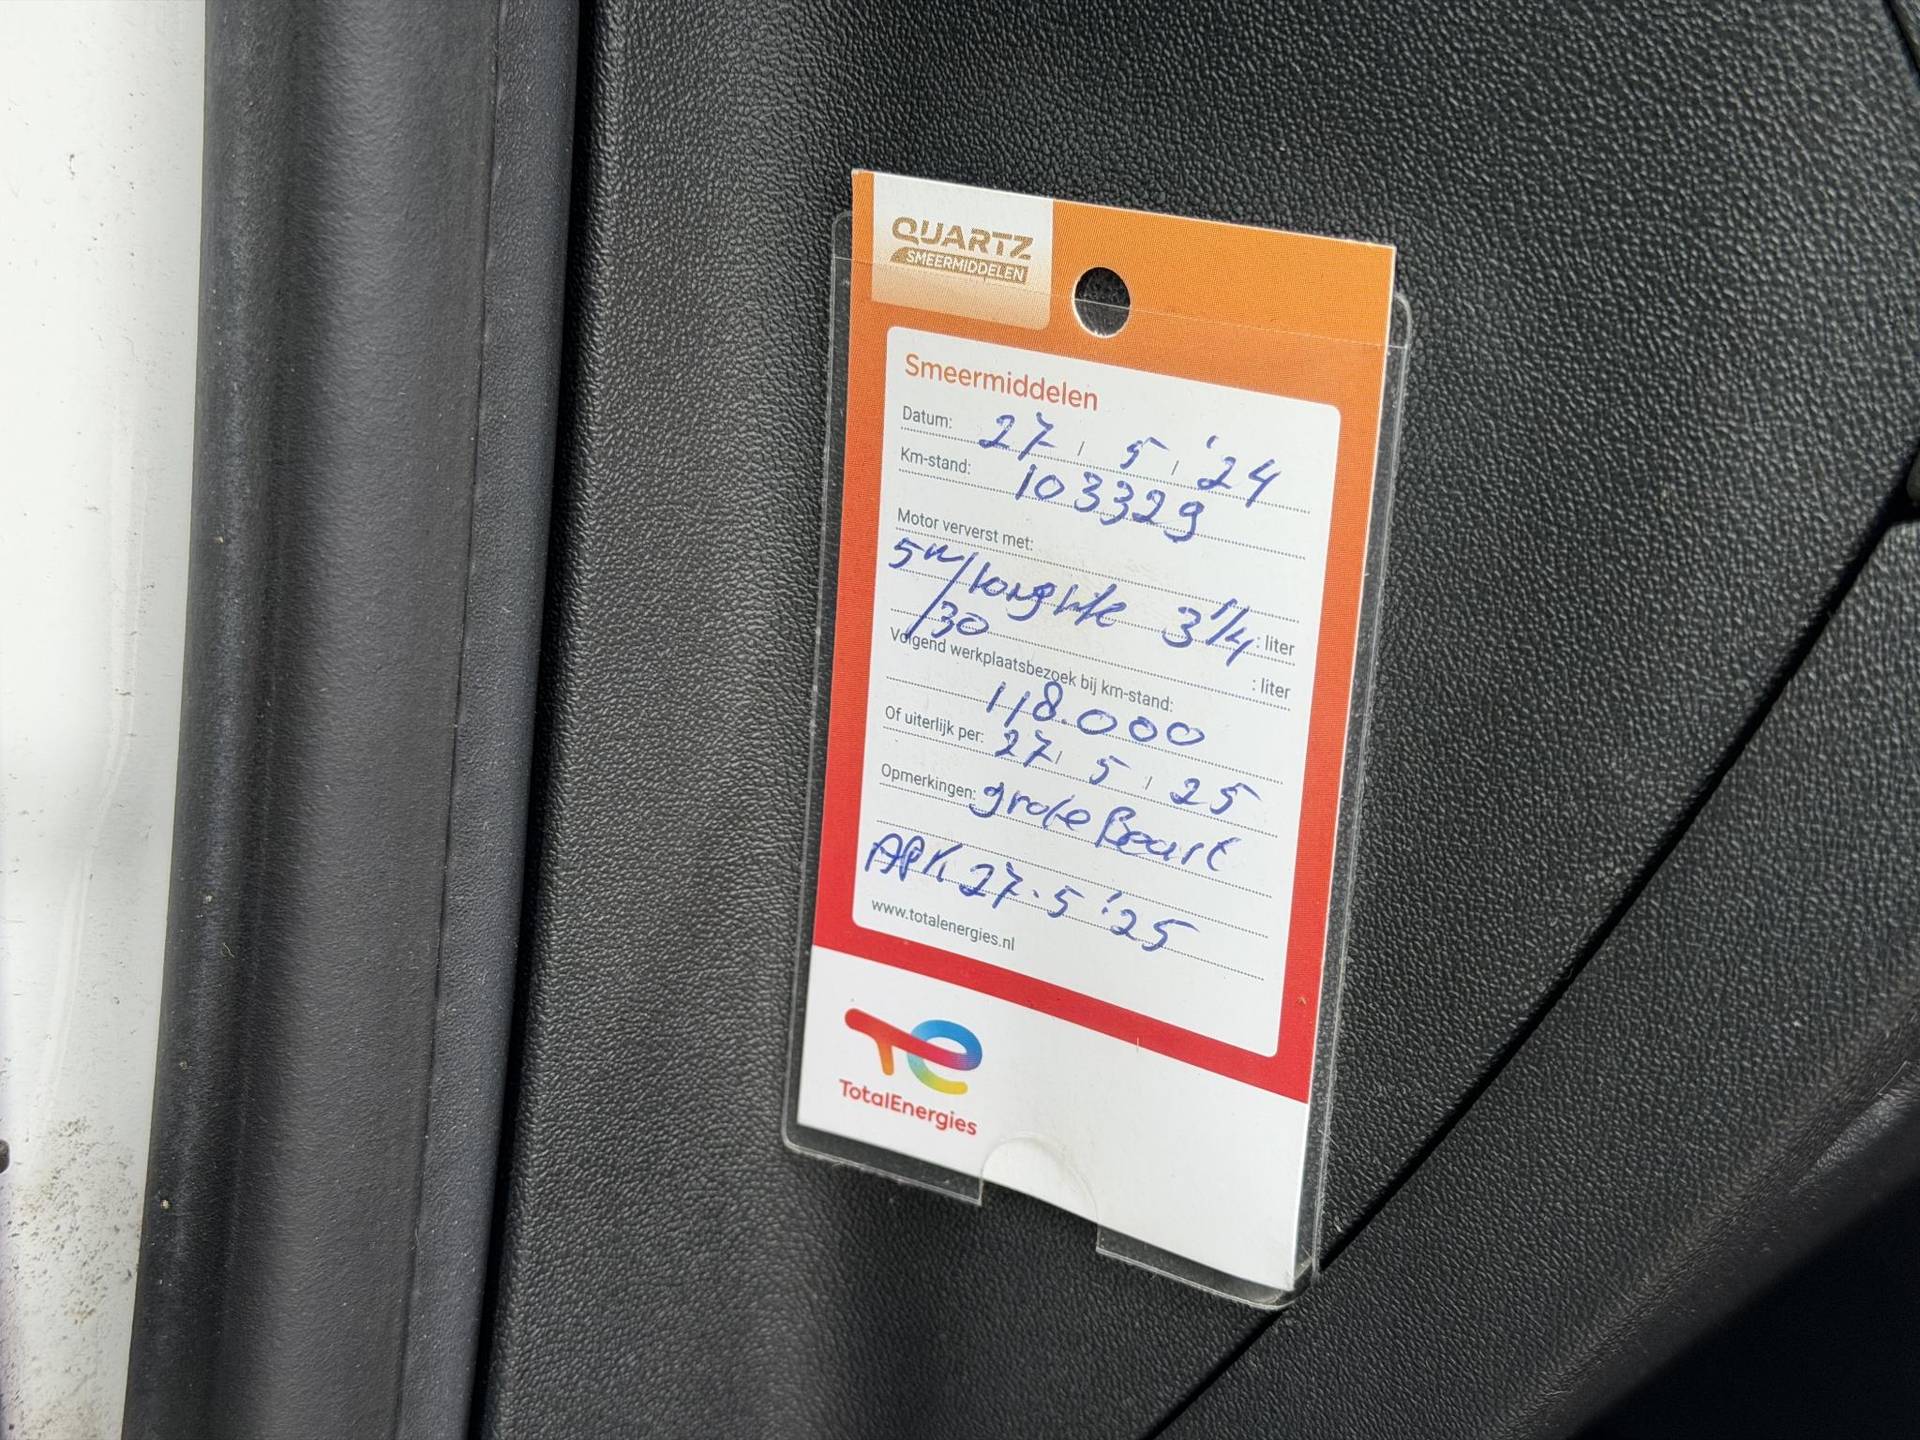 QUARTZ
SMEERMIDDELEN
Smeermiddelen
Datum: 27 / 5 / '24
Km-stand: 103329
Motor ververst met:
5w/longlife 3 1/4 : liter
/30 : liter
Volgend werkplaatsbezoek bij km-stand:
118.000
Of uiterlijk per: 27 / 5 / 25
Opmerkingen: grote Beurt
APK 27.5 '25
www.totalenergies.nl
TotalEnergies